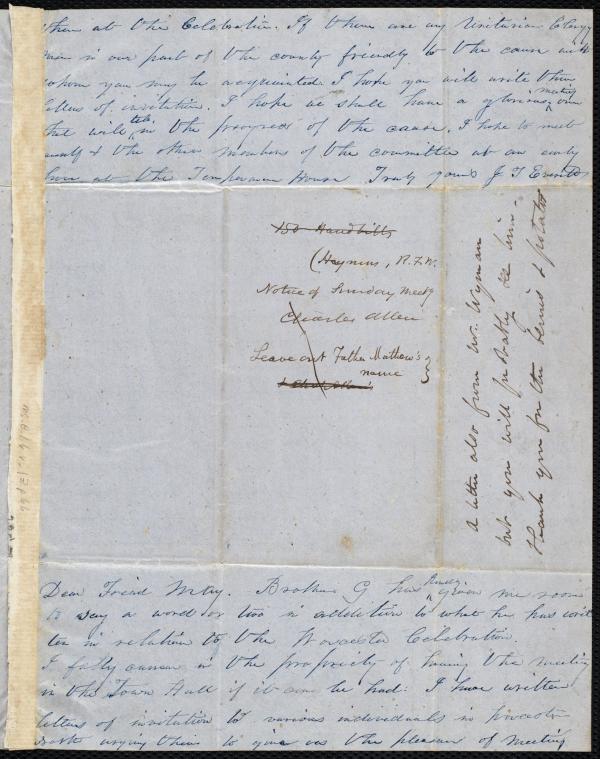 them at the Celebration. If there are any Unitarian Clergy
men in our part of the county friendly to the cause with
whom you may be acquainted I hope you will write them
letters of invitation. I hope we shall have a glorious meeting one
that will tell in the progress of the cause. I hope to meet
yourself & the other members of the committee at an early
hour at the Temperance House Truly yours J T Everett
150 Handbills
(Haynes, R.F.W.
Notice of Sunday meetg
Charles Allen
Leave out Father Mathew's
name
& Chas Allen's
A letter also from Mr. Wyman
but you will probably see him.
Thank you for the & potatoes
Ms.B.1.6 v.
Dear Friend M May. Brother G has kindly given me room
to say a word or two in addition to what he has writ
ten in relation to the Worcester Celebration.
I fully concur in the propriety of having the meeting
in the Town Hall if it can be had. I have written
letters of invitation to various individuals in
urging them to give us the pleasure of meeting